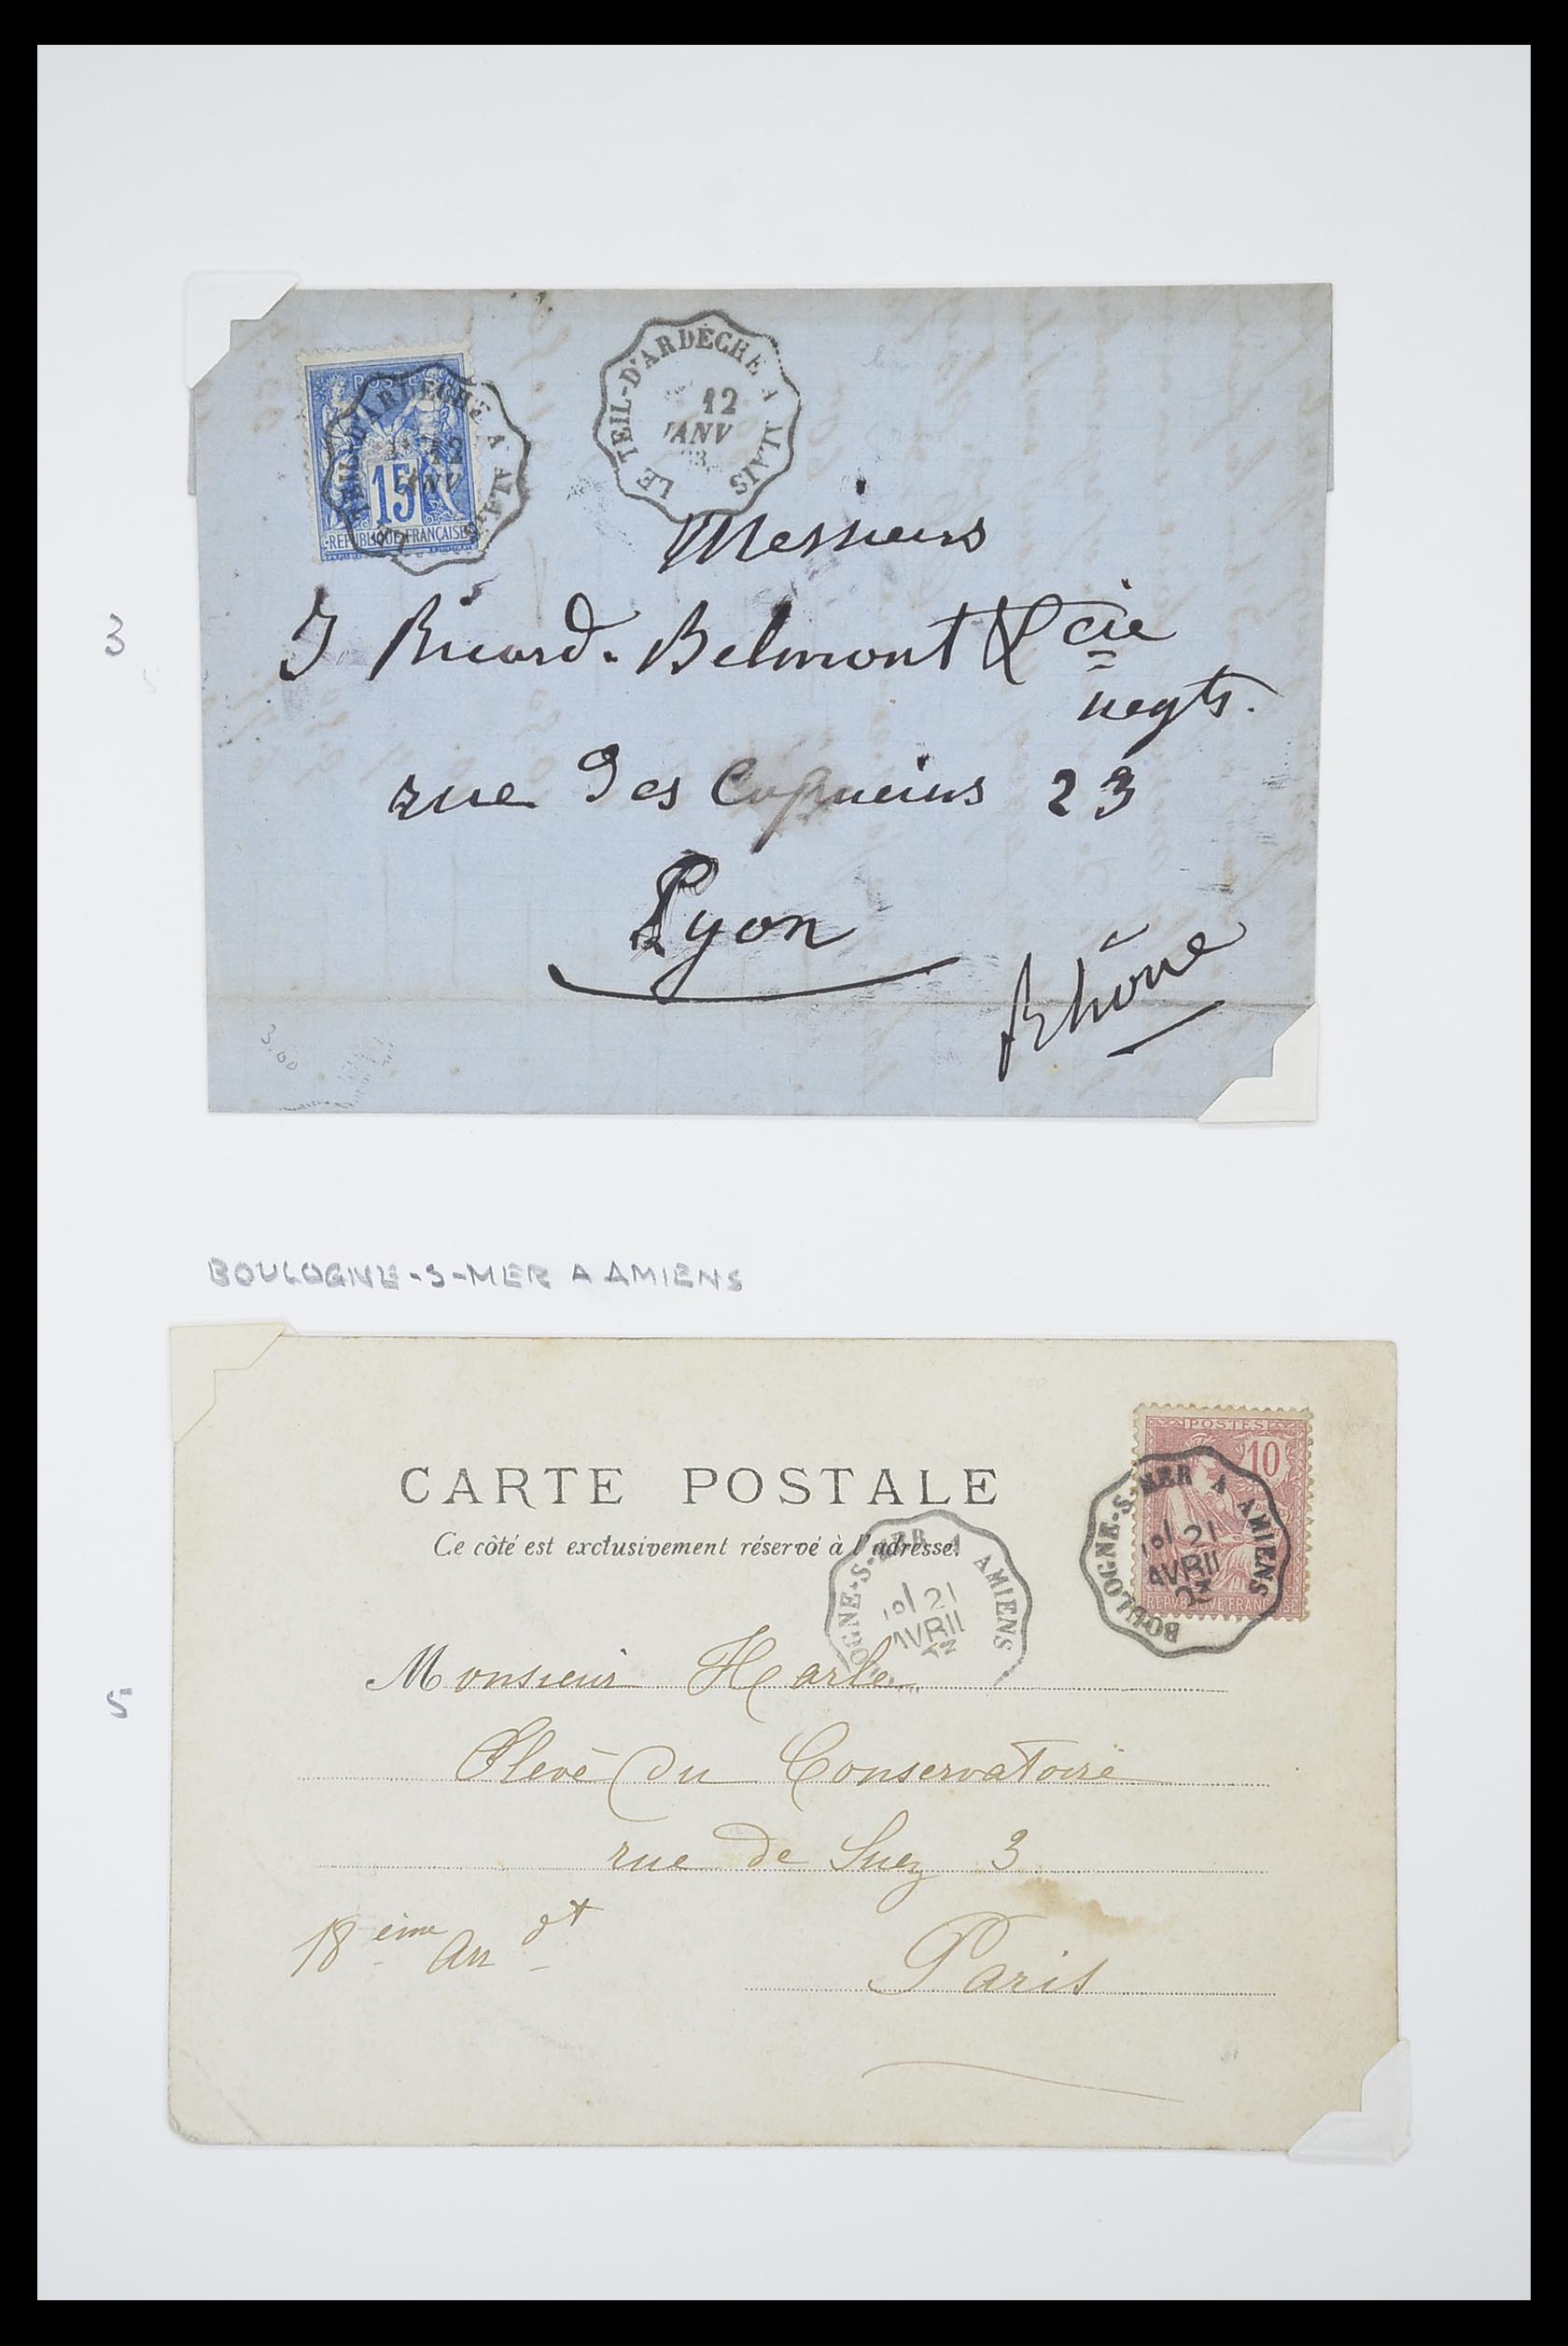 POSTES
15
REPUBLIQUE FRANÇAISE
LE TEIL-D'ARDÈCHE A ALAIS
12
JANV
Messieurs
J Ricard. Belmont & cie
negts.
rue des Capucins 23
Lyon
Rhône
3.00
3
BOULOGNE-S-MER A AMIENS
POSTES
10
REPVBLIQVE FRANÇAISE
BOULOGNE-S-MER A AMIENS
21
AVRIL
03
CARTE POSTALE
Ce côté est exclusivement réservé à l'adresse.
OGNE-S-MER A AMIENS
21
AVRIL
Monsieur Harle
Elevé du Conservatoire
rue de Suez 3
18 ème Arr dt
Paris
5